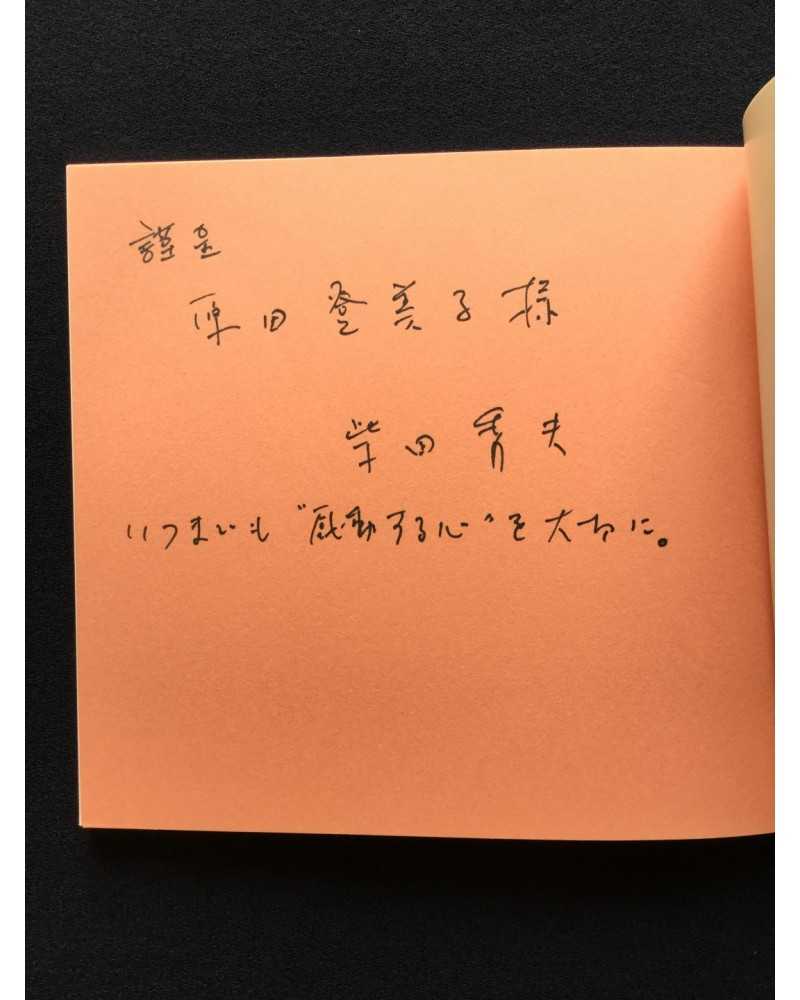 謹呈
原田登美子様
柴田秀夫
いつまでも"感動する心"を大切に。